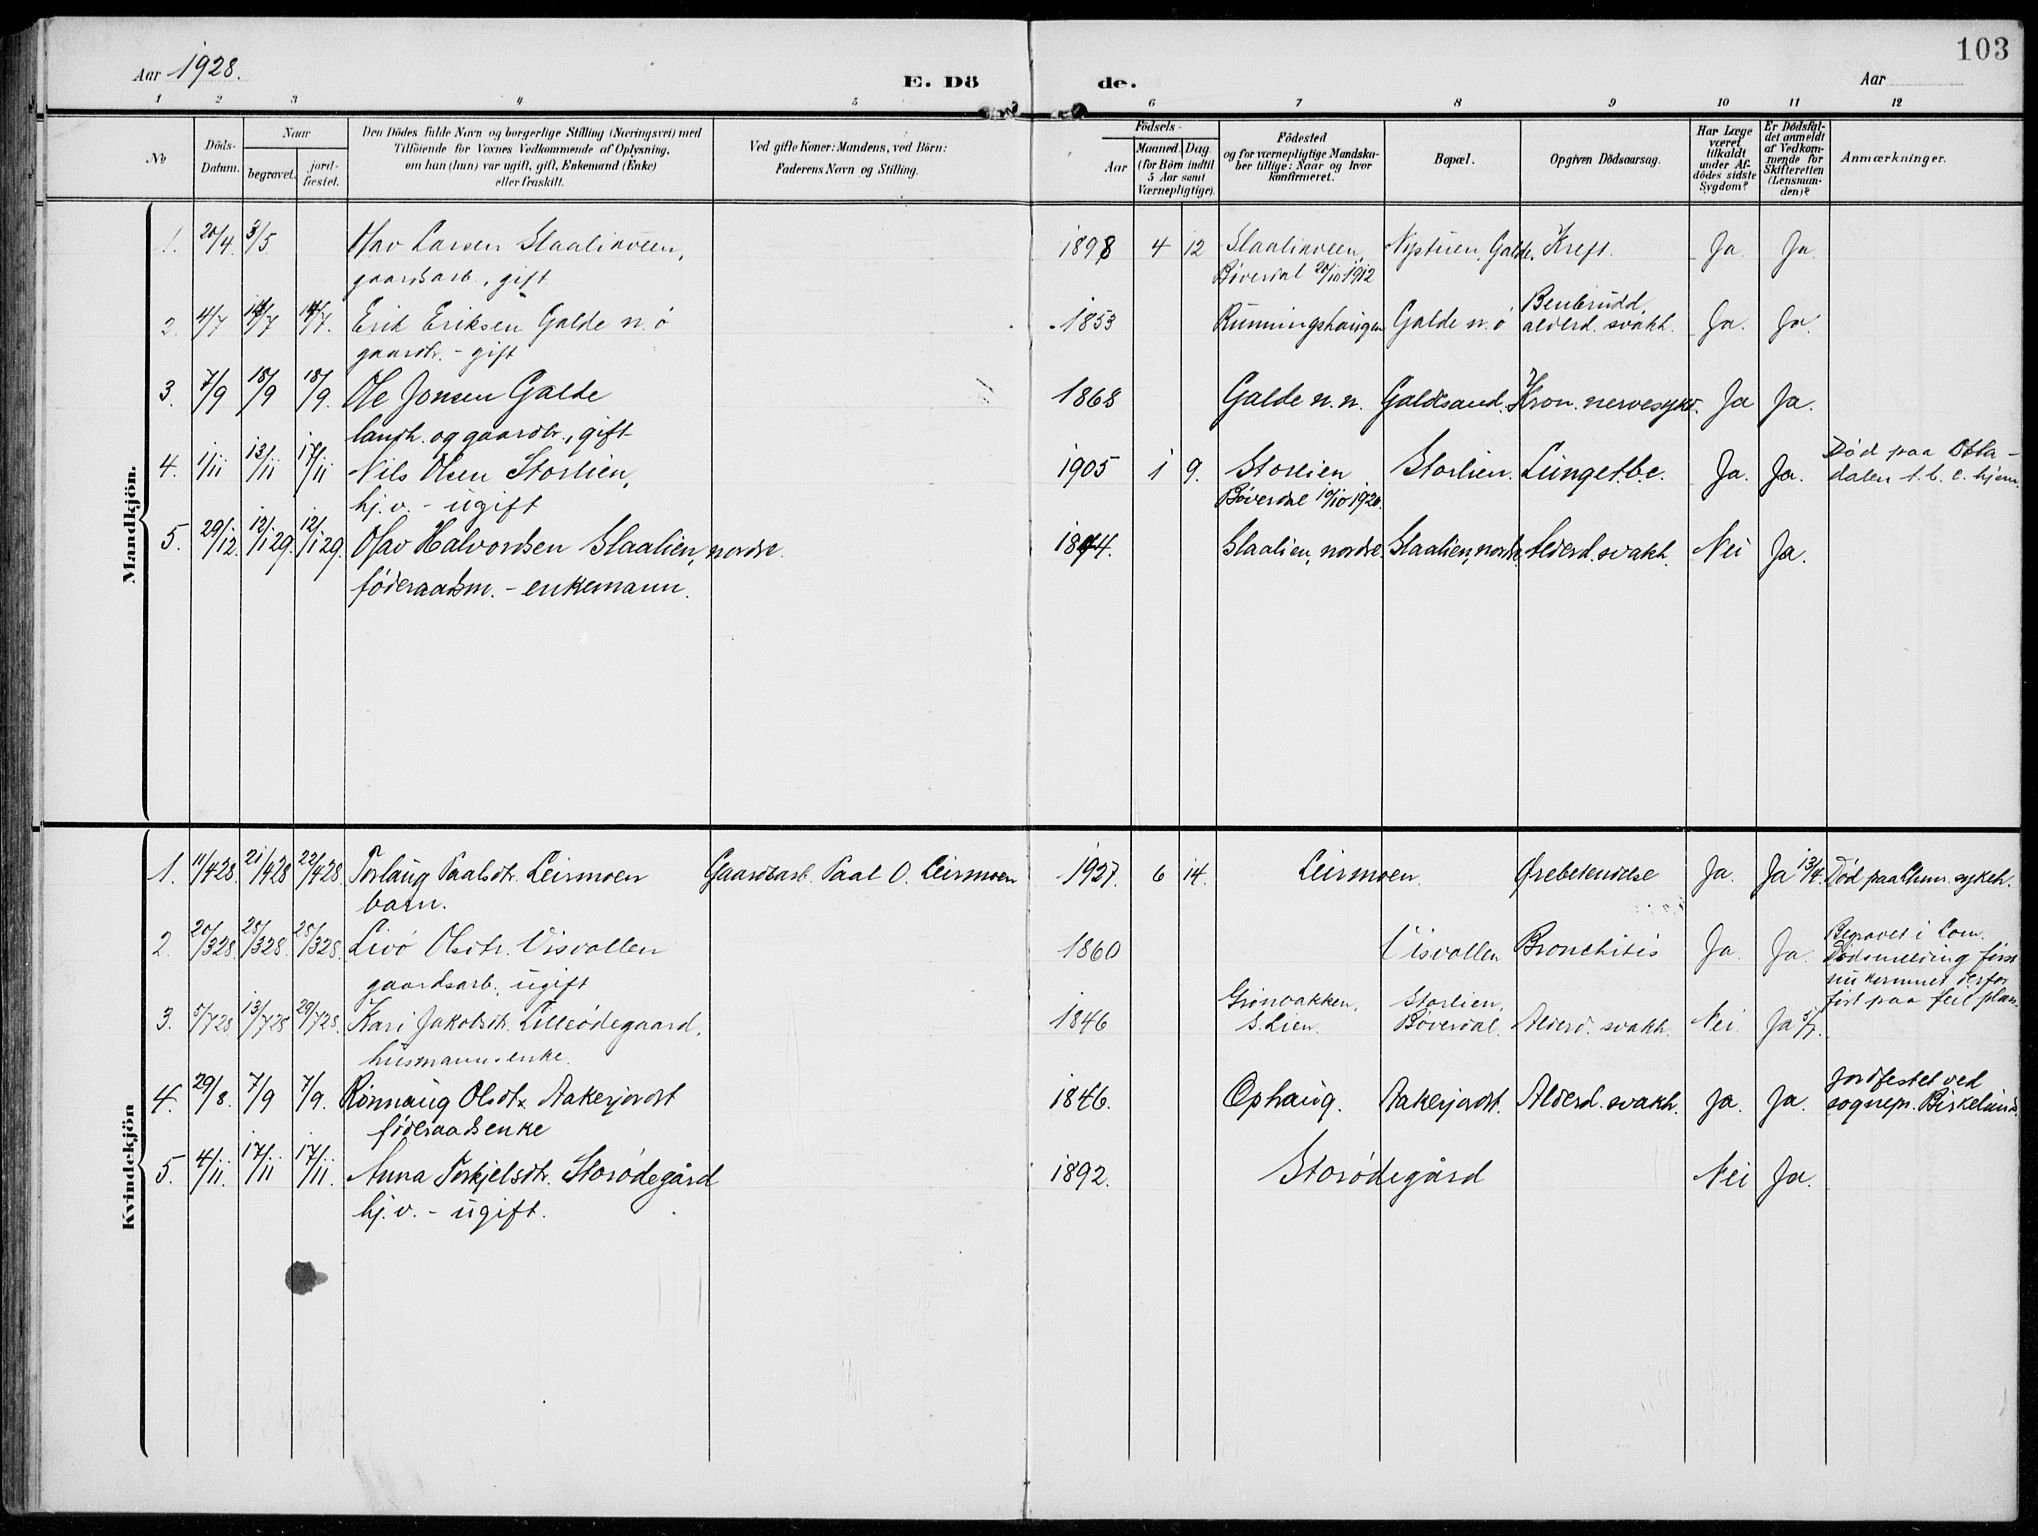 103
Aar 1928.
E. Dö de.
Aar
1 2 3 4 5 6 7 8 9 10 11 12
No
Döds-
Datum.
Naar
begravet.
jord-
fæstet.
Den Dödes fulde Navn og borgerlige Stilling (Næringsvei) med
Tilföiende for Voxnes Vedkommende af Oplysning,
om han (hun) var ugift, gift, Enkemand (Enke)
eller fraskilt.
Ved gifte Koner: Mandens, ved Börn:
Faderens Navn og Stilling.
Födsels-
Aar
Maaned. Dag
(for Börn indtil
5 Aar samt
Værnepligtige).
Födested
og for værnepligtige Mandska-
ber tillige: Naar og hvor
konfirmeret.
Bopæl.
Opgiven Dödsaarsag.
Har Læge
været
tilkaldt
under Af-
dödes sidste
Sygdom?
Er Dödsfal-
det anmeldt
af Vedkom-
mende for
Skifteretten
(Lensman-
den)?
Anmærkninger.
Mandkjön.
1. 20/4. 3/5 Olav Larsen Slaaliaveen, 1898 4 12 Slaaliaveen, Nystuen, Galde. Kreft. Ja. Ja.
gaardsarb., gift. Bøverdal 20/10 1912
2. 4/7 14/7 14/7. Erik Eriksen Galde n. ø 1853 Runningshaugen Galde n. ø Benbrudd, alderd. svakh. Ja. Ja.
gaardbr. - gift
3. 7/9 18/9 18/9. Ole Jonsen Galde 1868 Galde n. n. Galdesand. Kron. nervesykd. Ja Ja.
landh. og gaardbr., gift
4. 1/11 13/11 17/11 Nils Olsen Storlien, 1905 1 9. Storlien Storlien. Lungetbc. Ja. Ja. Død paa Otta-
hj. v. - ugift Bøverdal 10/10 1920. dalen t. b. c. hjem.
5. 29/12. 12/1 29. 12/1 29. Olav Halvordsen Slaalien, nordre 1844. Slaalien, nordre. Slaalien, nordre Alderd. svakh. Nei Ja.
føderaadsm. - enkemann.
Kvindekjön
1. 11/4 28. 21/4 28 22/4 28. Torlaug Paalsdtr. Leirmoen Gaardbarb. Paal O. Leirmoen 1927. 6 14. Leirmoen. Ørebetendelse Ja. Ja 13/4. Død paa Lom. sykeh.
barn.
2. 20/3 28. 28/3 28. 28/3 28. Livø Olsdtr. Visvollen 1860 Visvollen Bronchitis Ja. Ja. Begravet i Lom.
gaardsarb., ugift Dødsmelding først
nu kommet derfor
ført paa feil plass
3. 5/7 28. 13/7 28 29/7 28. Kari Jakobsdtr. Lilleødegaard, 1846 Grønbakken, S. Lien. Storlien, Bøverdal. Alderd. svakh. Nei. Ja 5/7.
husmanns enke.
4. 29/8. 7/9 7/9. Rønnaug Olsdtr. Aakerjordt 1846. Ophaug. Aakerjordt. Alderd. svakh. Ja. Ja. Jordfestet ved
føderaadsenke sognepr. Birkelund.
5. 4/11. 17/11 17/11. Anna Torkjelsdtr. Storødegård 1892. Storødegård Nei Ja.
hj. v. - ugift.